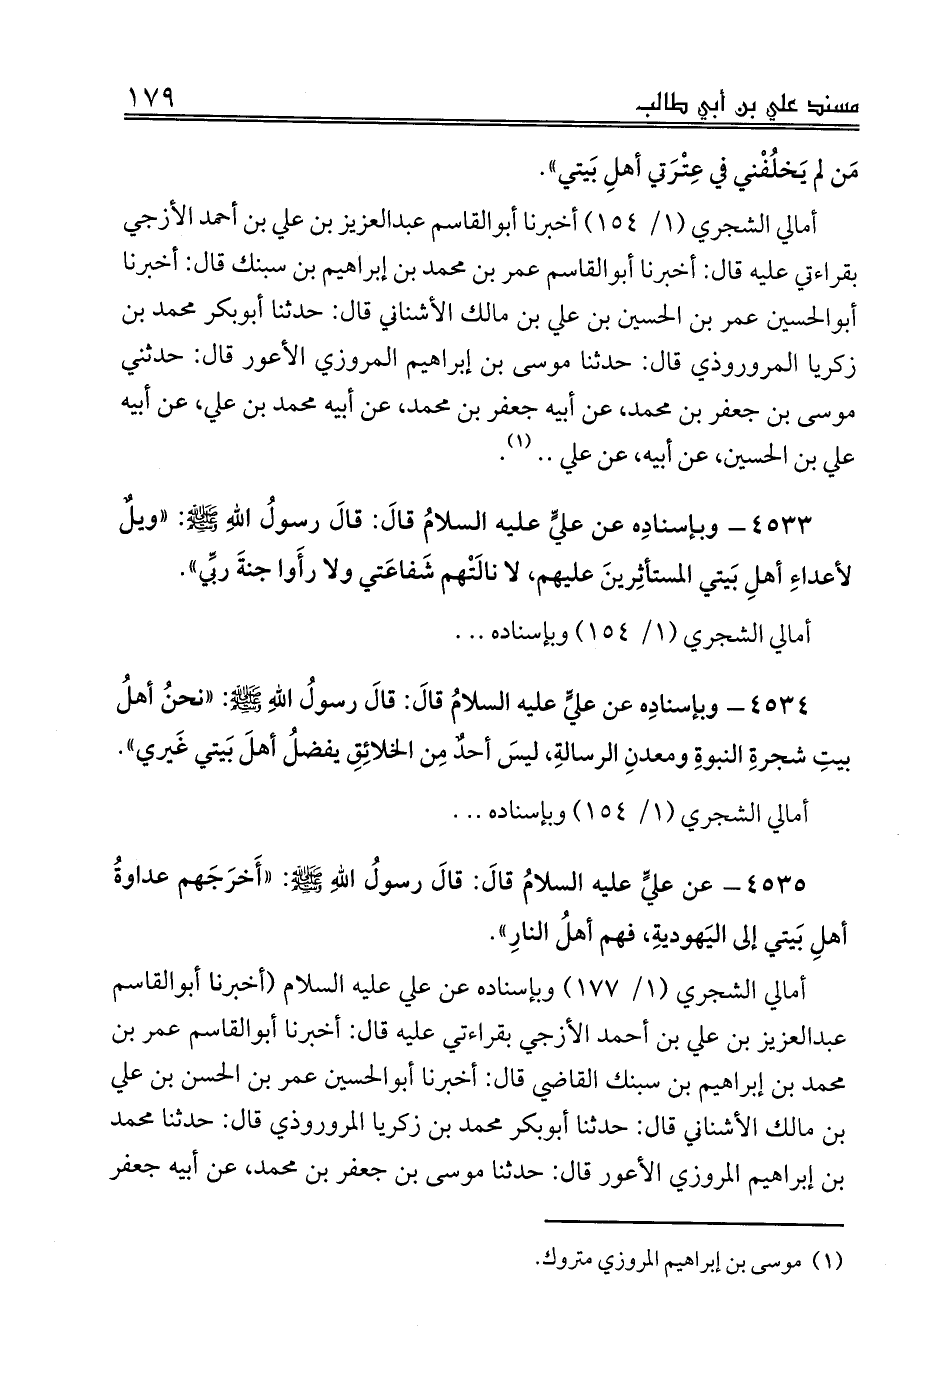 مسند علي بن أبي طالب ١٧٩
مَن لم يَخلُفْني في عِتْرَتي أهلِ بَيتي».
أمالي الشجري (١/ ١٥٤) أخبرنا أبوالقاسم عبدالعزيز بن علي بن أحمد الأزجي
بقراءتي عليه قال: أخبرنا أبوالقاسم عمر بن محمد بن إبراهيم بن سبنك قال: أخبرنا
أبوالحسين عمر بن الحسين بن علي بن مالك الأشناني قال: حدثنا أبوبكر محمد بن
زكريا المروروذي قال: حدثنا موسى بن إبراهيم المروزي الأعور قال: حدثني
موسى بن جعفر بن محمد، عن أبيه جعفر بن محمد، عن أبيه محمد بن علي، عن أبيه
علي بن الحسين، عن أبيه، عن علي .. (١).
٤٥٣٣ – وبإسنادِه عن عليٍّ عليه السلامُ قالَ: قالَ رسولُ اللهِ ﷺ: «ويلٌ
لأعداءِ أهلِ بَيتي المستأثِرينَ عليهم، لا نالَتْهم شَفاعَتي ولا رأَوا جنةَ ربِّي».
أمالي الشجري (١/ ١٥٤) وبإسناده ...
٤٥٣٤ – وبإسنادِه عن عليٍّ عليه السلامُ قالَ: قالَ رسولُ اللهِ ﷺ: «نحنُ أهلُ
بيتِ شجرةِ النبوةِ ومعدنِ الرسالةِ، ليسَ أحدٌ مِن الخلائقِ يفضلُ أهلَ بَيتي غَيري».
أمالي الشجري (١/ ١٥٤) وبإسناده ...
٤٥٣٥ – عن عليٍّ عليه السلامُ قالَ: قالَ رسولُ اللهِ ﷺ: «أَخرَجَهم عداوةُ
أهلِ بَيتي إلى اليَهوديةِ، فهم أهلُ النارِ».
أمالي الشجري (١/ ١٧٧) وبإسناده عن علي عليه السلام (أخبرنا أبوالقاسم
عبدالعزيز بن علي بن أحمد الأزجي بقراءتي عليه قال: أخبرنا أبوالقاسم عمر بن
محمد بن إبراهيم بن سبنك القاضي قال: أخبرنا أبوالحسين عمر بن الحسن بن علي
بن مالك الأشناني قال: حدثنا أبوبكر محمد بن زكريا المروروذي قال: حدثنا محمد
بن إبراهيم المروزي الأعور قال: حدثنا موسى بن جعفر بن محمد، عن أبيه جعفر
(١) موسى بن إبراهيم المروزي متروك.